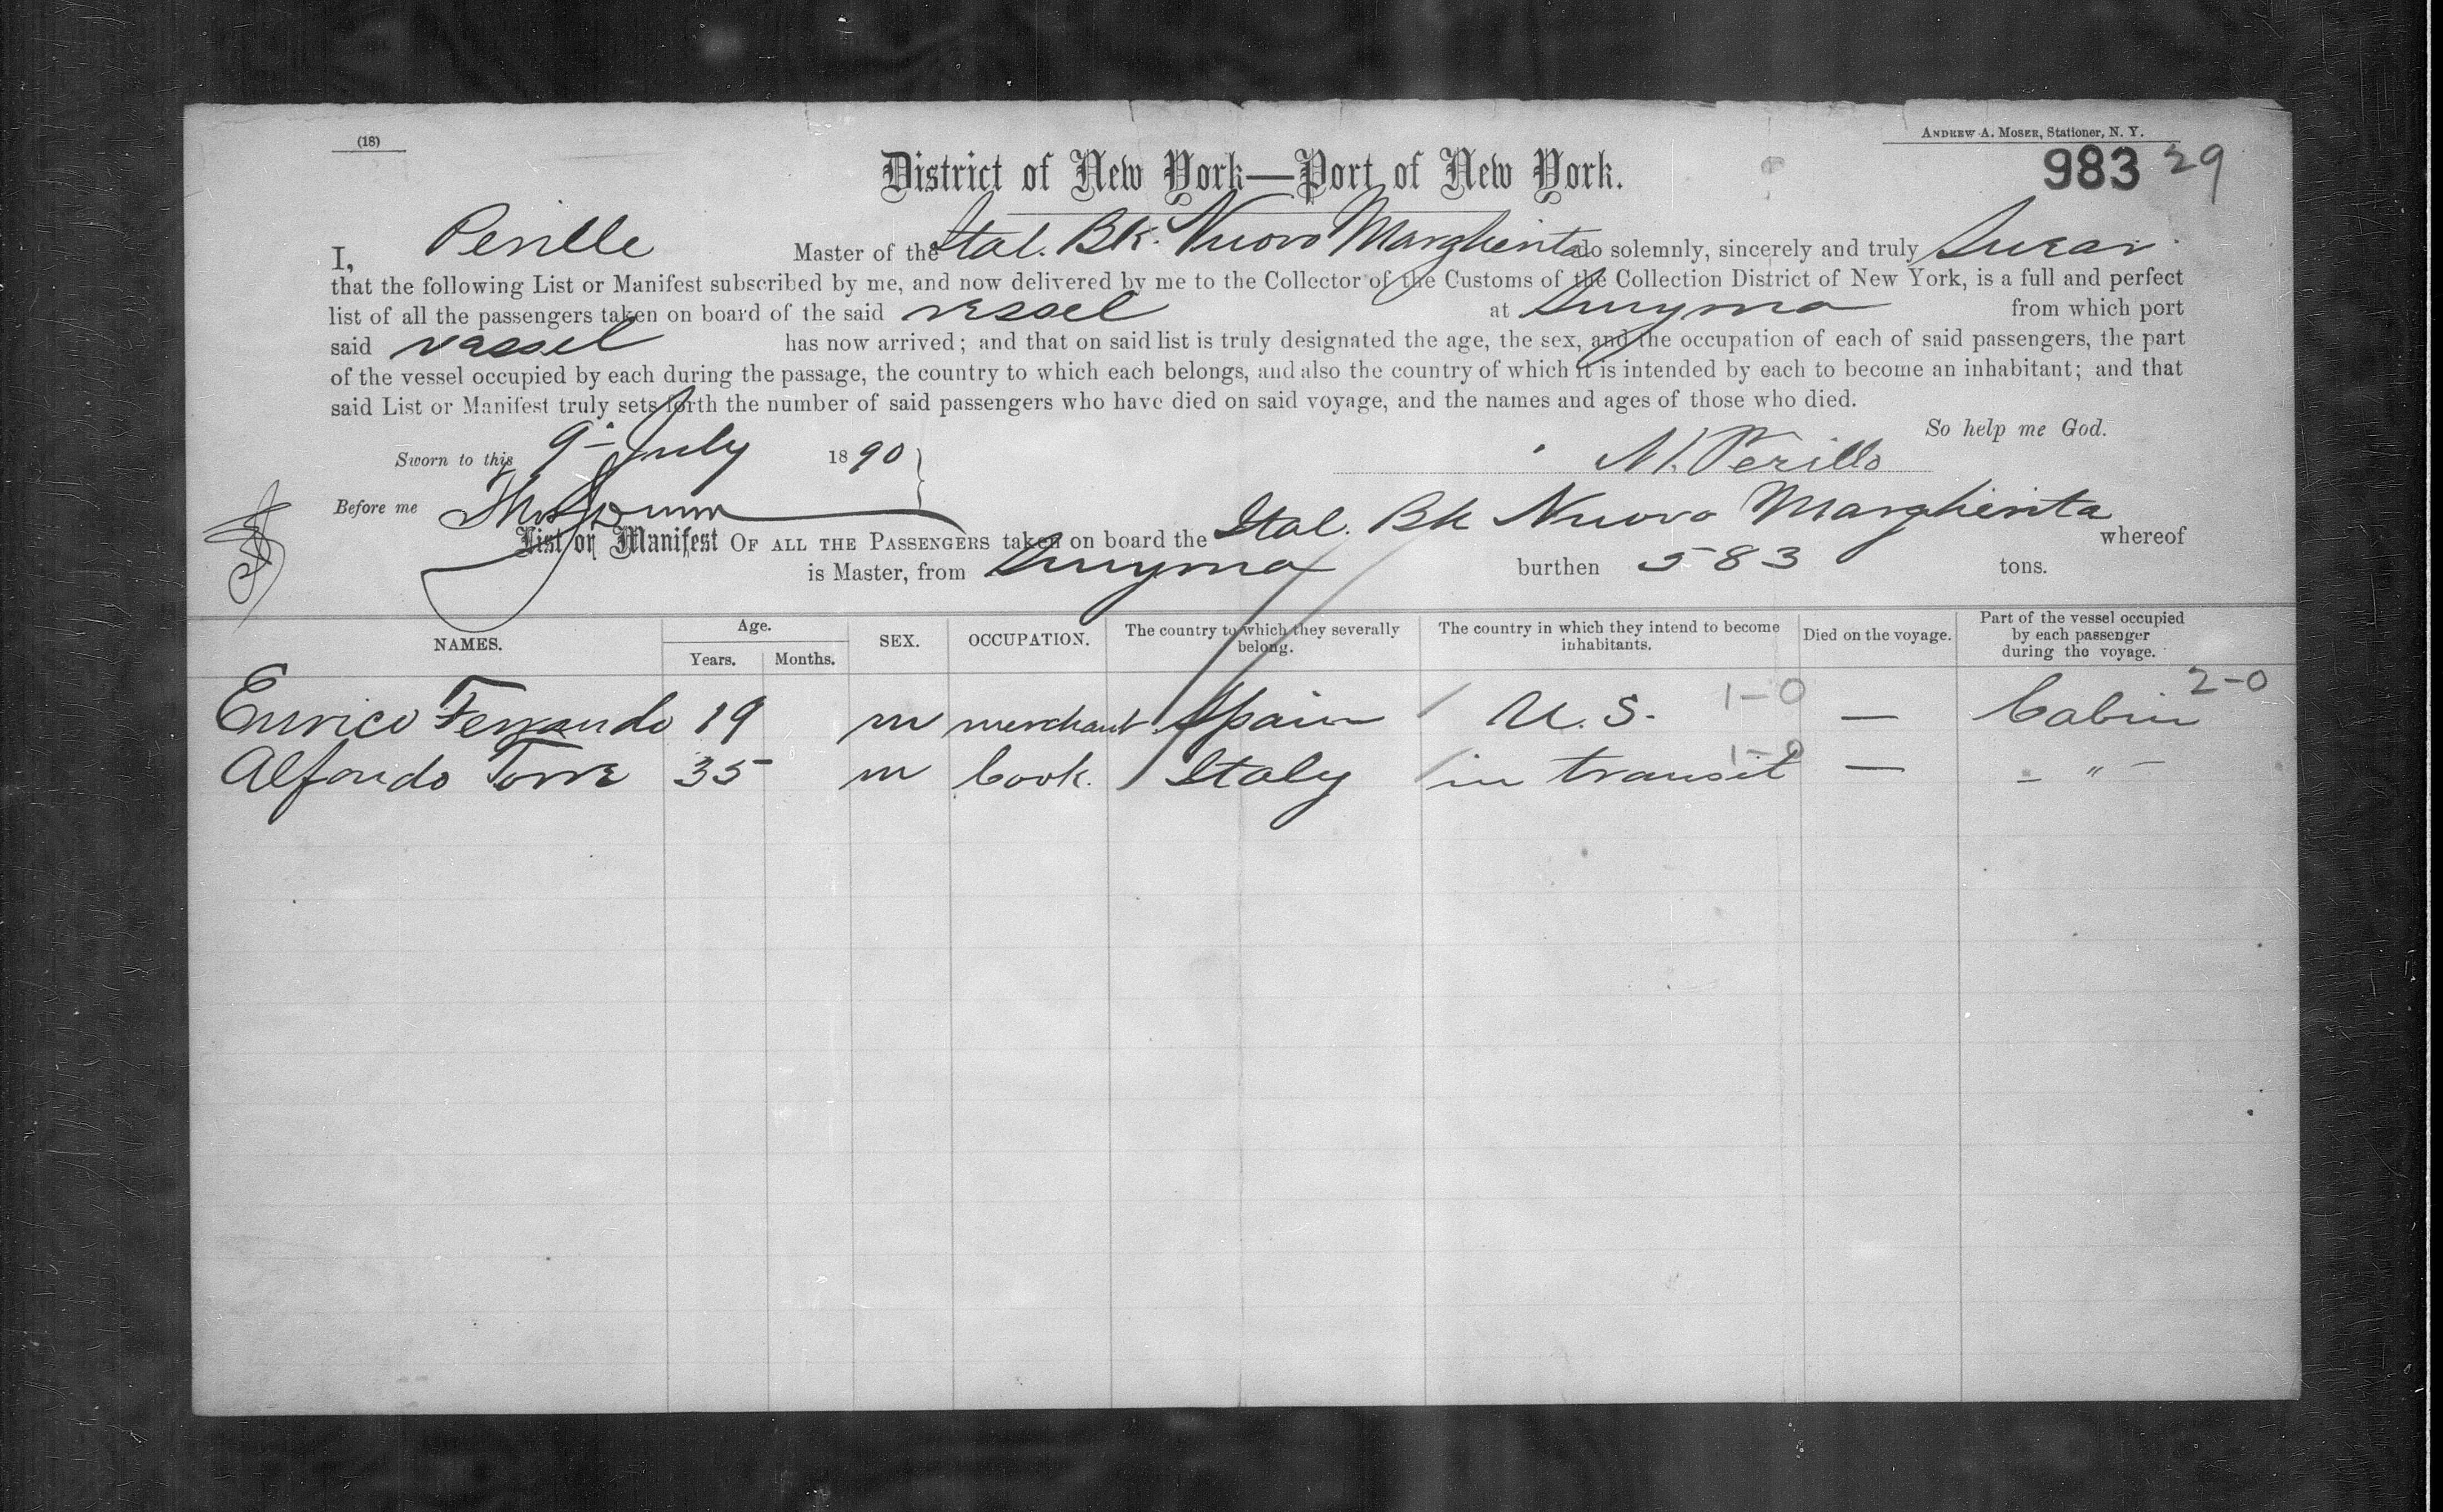 (18)
ANDREW A. MOSER, Stationer, N. Y.
983 29
District of New York—Port of New York.
I, Perille Master of the Ital. Bk. Nuovo Margherita do solemnly, sincerely and truly Swear
that the following List or Manifest subscribed by me, and now delivered by me to the Collector of the Customs of the Collection District of New York, is a full and perfect
list of all the passengers taken on board of the said vessel at Smyrna from which port
said vassel has now arrived; and that on said list is truly designated the age, the sex, and the occupation of each of said passengers, the part
of the vessel occupied by each during the passage, the country to which each belongs, and also the country of which it is intended by each to become an inhabitant; and that
said List or Manifest truly sets forth the number of said passengers who have died on said voyage, and the names and ages of those who died.
So help me God.
Sworn to this 9 July 1890 N. Perillo
Before me
List or Manifest OF ALL THE PASSENGERS taken on board the Ital. Bk Nuovo Margherita whereof
is Master, from Smyrna burthen 583 tons.
NAMES. Age. Years. Months. SEX. OCCUPATION. The country to which they severally belong. The country in which they intend to become inhabitants. Died on the voyage. Part of the vessel occupied by each passenger during the voyage.
2-0
Enrico Ferrando 19 m merchant Spain U.S. 1-0 — Cabin
Alfondo Torre 35 m Cook. Italy in transit 1-0 — - " -